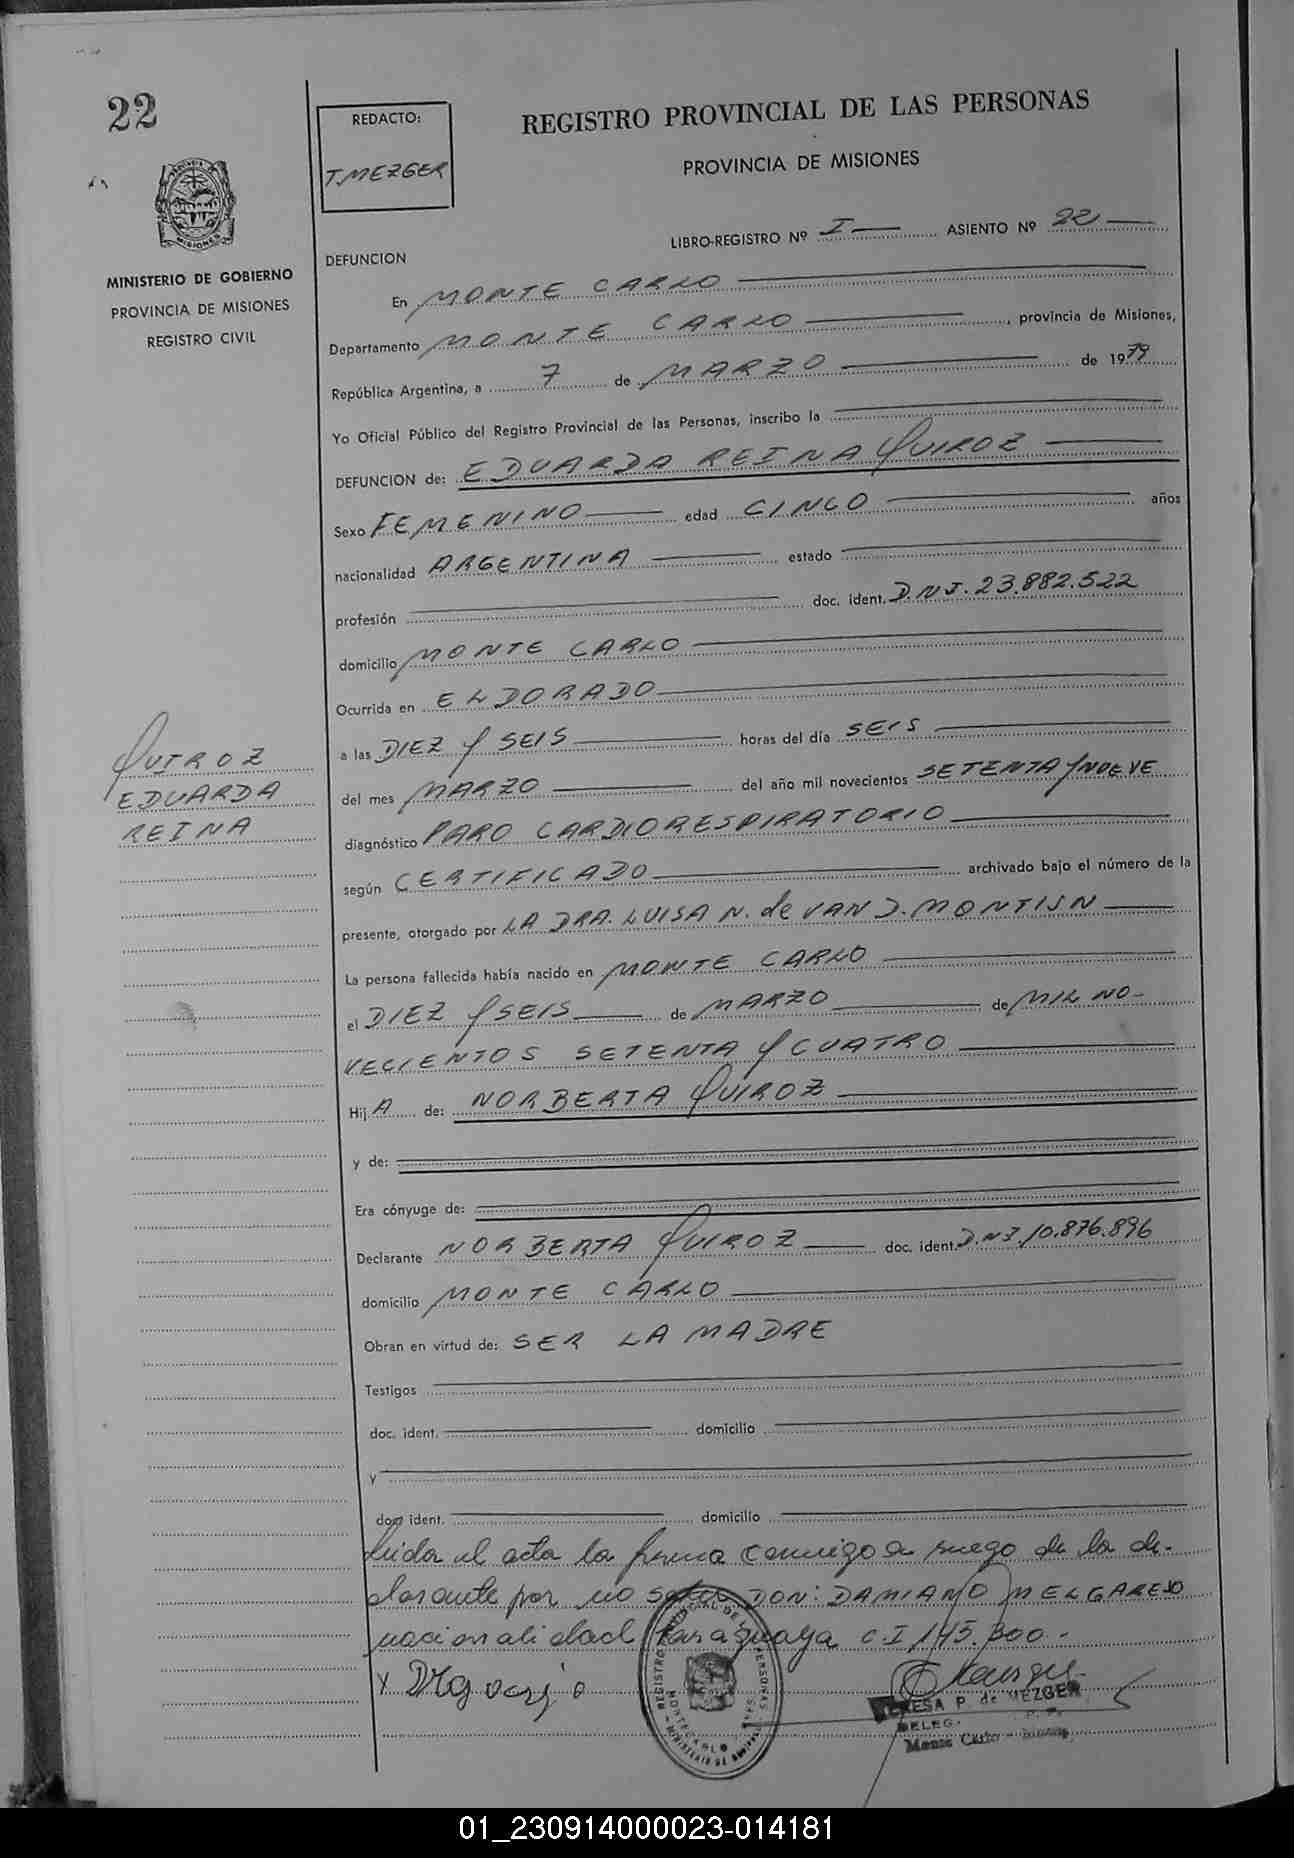 22
REDACTO:
T. MEZGER
REGISTRO PROVINCIAL DE LAS PERSONAS
PROVINCIA DE MISIONES
LIBRO-REGISTRO Nº I ASIENTO Nº 22
MINISTERIO DE GOBIERNO
PROVINCIA DE MISIONES
REGISTRO CIVIL
DEFUNCION
En MONTE CARLO
Departamento MONTE CARLO, provincia de Misiones,
República Argentina, a 7 de MARZO de 1979
Yo Oficial Público del Registro Provincial de las Personas, inscribo la
DEFUNCION de: EDUARDA REINA QUIROZ
Sexo FEMENINO edad CINCO años
nacionalidad ARGENTINA estado
profesión doc. ident. D.N.I. 23.882.522
domicilio MONTE CARLO
Ocurrida en ELDORADO
QUIROZ
EDUARDA
REINA
a las DIEZ Y SEIS horas del día SEIS
del mes MARZO del año mil novecientos SETENTA Y NUEVE
diagnóstico PARO CARDIORESPIRATORIO
según CERTIFICADO archivado bajo el número de la
presente, otorgado por LA DRA. LUISA N. de VAN D. MONTIJN
La persona fallecida había nacido en MONTE CARLO
el DIEZ Y SEIS de MARZO de MIL NO-
VECIENTOS SETENTA Y CUATRO
Hij A de: NORBERTA QUIROZ
y de:
Era cónyuge de:
Declarante NORBERTA QUIROZ doc. ident. D.N.I. 10.876.896
domicilio MONTE CARLO
Obran en virtud de: SER LA MADRE
Testigos
doc. ident. domicilio
y
doc ident. domicilio
Leida el acta la firma conmigo a ruego de la de-
clarante por no saber DON: DAMIANO MELGAREJO
nacionalidad Paraguaya C.I 145.300.-
TERESA P. de MEZGER
DELEG.
Monte Carlo - Misiones
01_230914000023-014181